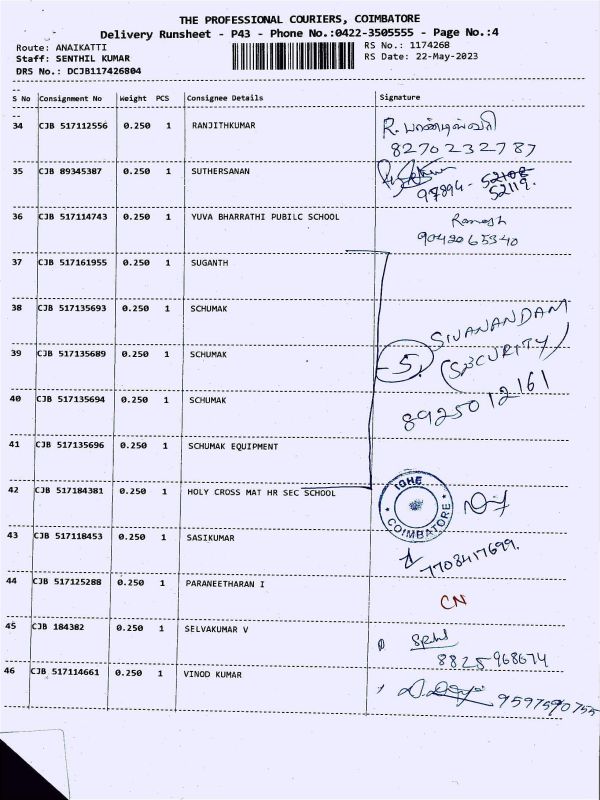 THE PROFESSIONAL COURIERS, COIMBATORE
Delivery Runsheet - P43 - Phone No.:0422-3505555 - Page No.:4
Route: ANAIKATTI
RS No.: 1174268
Staff: SENTHIL KUMAR
RS Date: 22-May-2023
DRS No.: DCJB117426804
S No Consignment No Weight PCS Consignee Details Signature
34 CJB 517112556 0.250 1 RANJITHKUMAR R. பாண்டிஸ்வரி
8270232787
35 CJB 89345387 0.250 1 SUTHERSANAN
97894 - 52108
52119.
36 CJB 517114743 0.250 1 YUVA BHARRATHI PUBILC SCHOOL Ramesh
9042065340
37 CJB 517161955 0.250 1 SUGANTH
38 CJB 517135693 0.250 1 SCHUMAK SIVANANDAM
39 CJB 517135689 0.250 1 SCHUMAK 5. (SECURITY)
40 CJB 517135694 0.250 1 SCHUMAK 8925012161
41 CJB 517135696 0.250 1 SCHUMAK EQUIPMENT
42 CJB 517184381 0.250 1 HOLY CROSS MAT HR SEC SCHOOL IGHE COIMBATORE
43 CJB 517118453 0.250 1 SASIKUMAR
7708417699.
44 CJB 517125288 0.250 1 PARANEETHARAN I CN
45 CJB 184382 0.250 1 SELVAKUMAR V
8825968674
46 CJB 517114661 0.250 1 VINOD KUMAR 9597590755